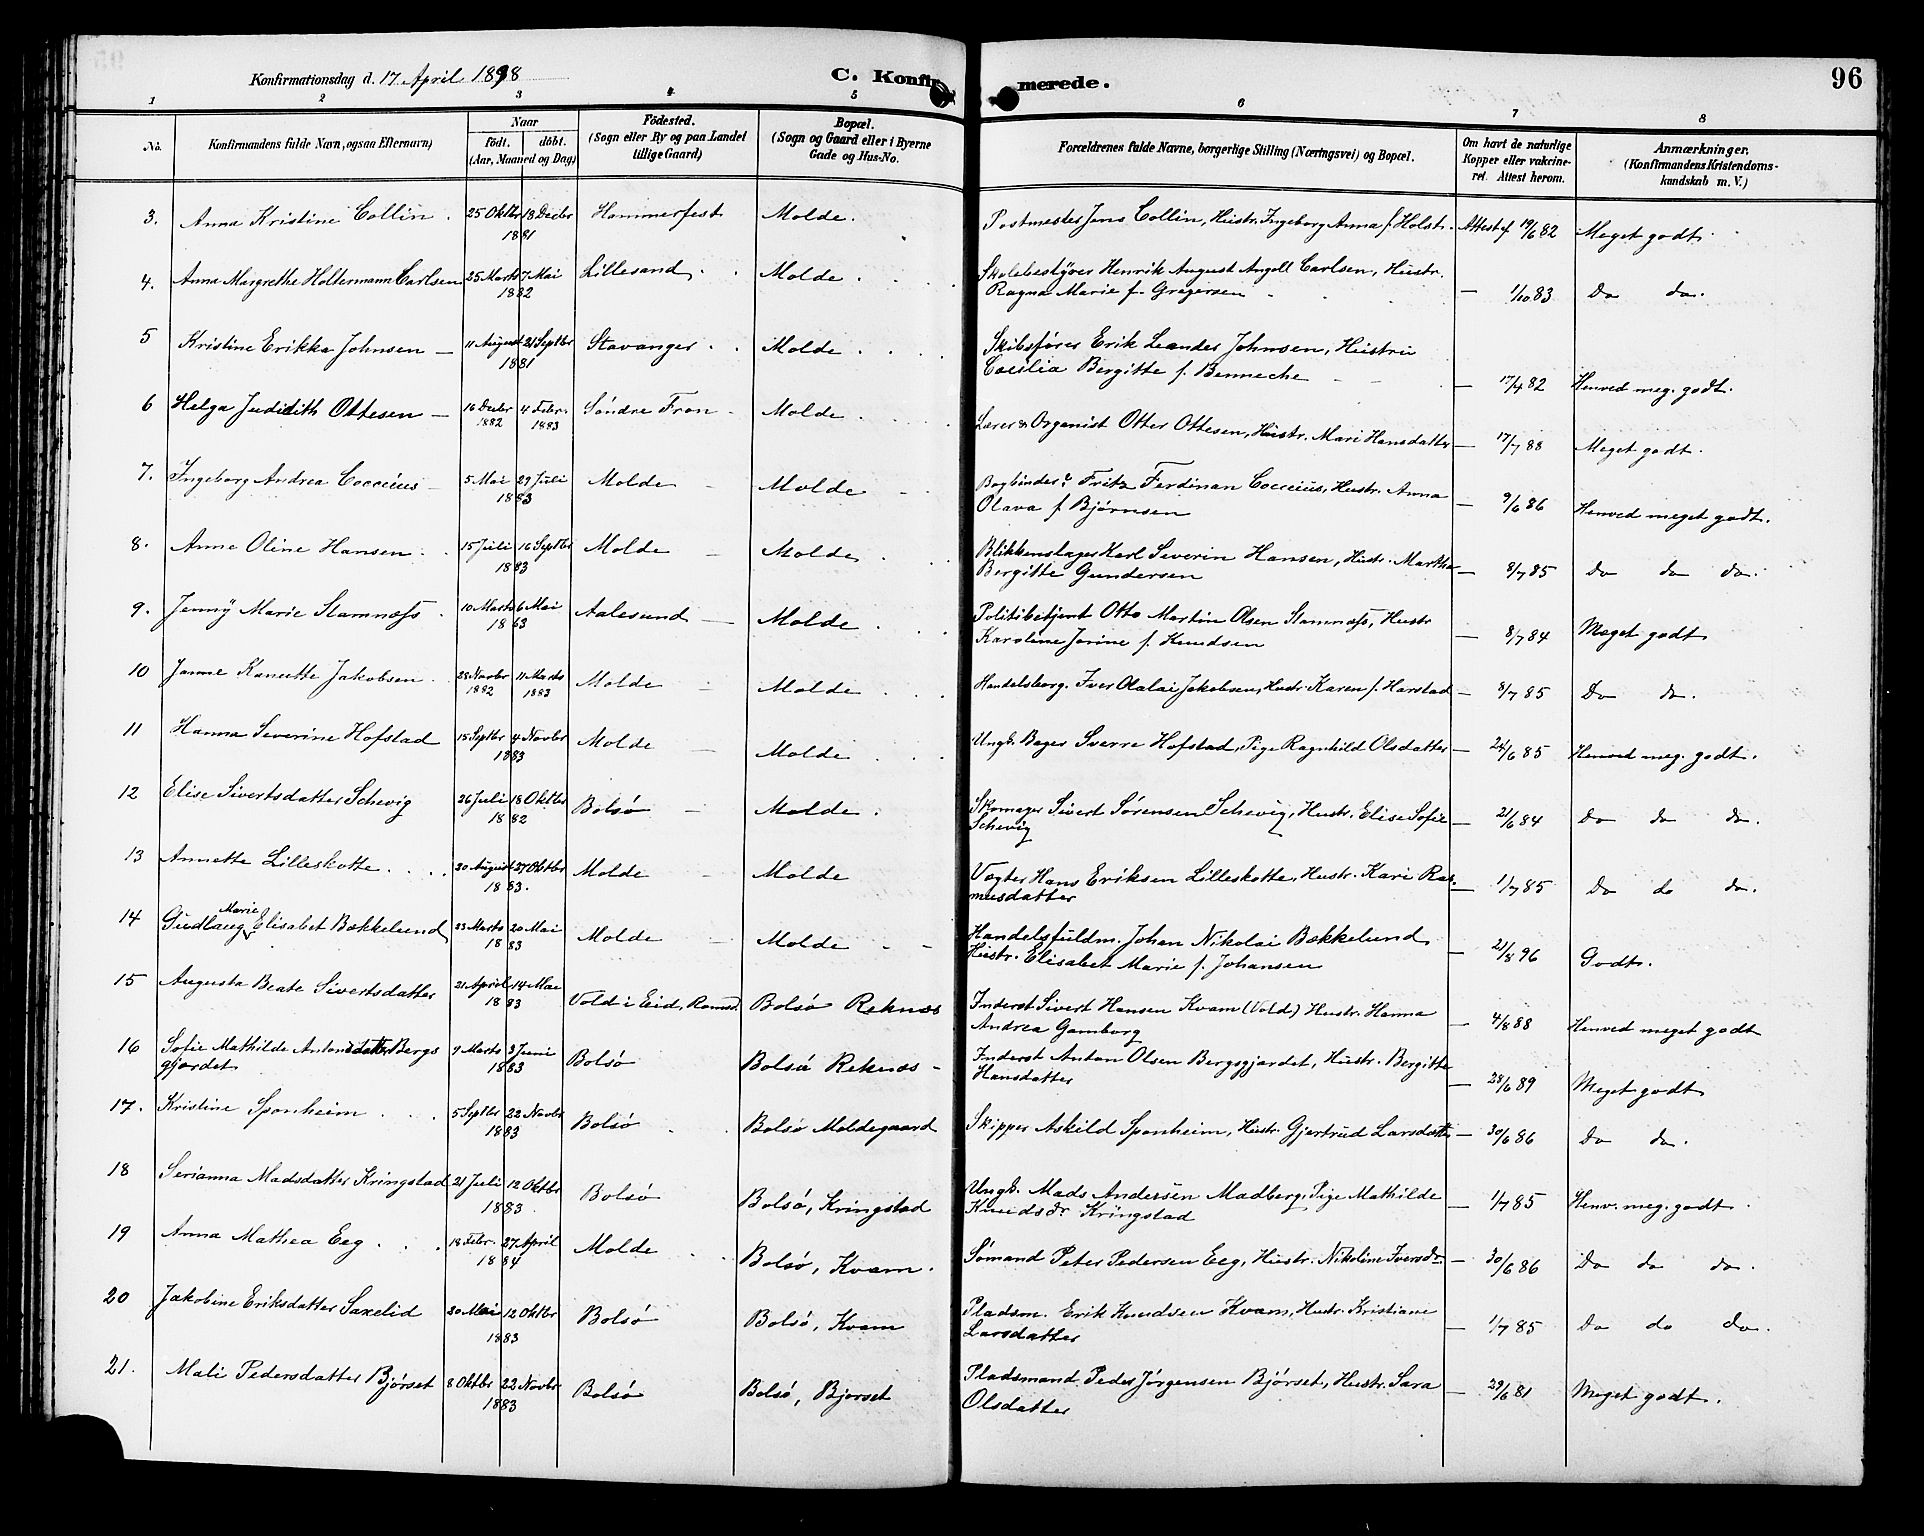 Konfirmationsdag d. 17 April 1898 C. Konfirmerede. 96
1 2 3 4 5 6 7 8
No. Konfirmandens fulde Navn, ogsaa Efternavn) Naar födt. döbt. (Aar, Maaned og Dag) Födested. (Sogn eller By og paa Landet tillige Gaard) Bopæl. (Sogn og Gaard eller i Byerne Gade og Hus-No. Forældrenes fulde Navne, borgerlige Stilling (Næringsvei) og Bopæl. Om havt de naturlige Kopper eller vakcineret. Attest herom. Anmærkninger, (Konfirmandens Kristendomskundskab m. V.)
3. Anna Kristine Collin. 25 Oktbr 18 Decbr 1881 Hammerfest Molde. Postmester Jens Collin, Hustr. Ingeborg Anna f. Holst. Attest af 19/6 82 Meget godt.
4. Anna Margrethe Holtermann Carlsen 25 Marts 7 Mai 1882 Lillesand Molde. Skolebestyrer Henrik August Angell Carlsen, Hustr.
Ragna Marie f. Gregersen — 1/10 83 Do do.
5 Kristine Erikka Johnsen — 11 August 21 Septbr 1881 Stavanger Molde. Skibsfører Erik Leander Johnsen, Hustru
Cæcilia Bergitte f. Benneche — 17/4 82 Henved meg. godt.
6 Helga Judith Ottesen — 16 Decbr 1882 4 Febr. 1883 Söndre Fron Molde. Lærer & Organist Otter Ottesen, Hustr. Mari Hansdatter — 17/7 88 Meget godt.
7. Ingeborg Andrea Cocceius 5 Mai 29 Juli 1883 Molde Molde Bogbinder Fritz Ferdinan Cocceius, Hustr. Anna
Olava f. Bjørnsen — 9/6 86 Henved meget godt.
8. Anne Oline Hansen 15 Juli 16 Septbr 1883 Molde Molde Blikkenslager Karl Severin Hansen, Hustr. Martha
Bergitte Gundersen — 8/7 85 Do do do.
9. Jenny Marie Stamnæss 10 Marts 6 Mai 1883 Aalesund Molde Politibetjent Otto Martin Olsen Stamnæss, Hustr
Karoline Jorine f. Knudsen — 8/7 84 Meget godt
10 Janne Kanutte Jakobsen 28 Novbr 1882 11 Marts 1883 Molde Molde Handelsborg. Iver Olalai Jakobsen, Hustr. Karen f. Harstad — 8/7 85 Do do.
11 Hanna Severine Hofstad 15 Septbr 4 Novbr 1883 Molde Molde Ungk. Bager Sverre Hofstad, Pige Ragnhild Olsdatter — 24/6 85 Henved meg. godt.
12 Elise Sivertsdatter Schevig 26 Juli 18 Oktbr 1882 Bolsö Molde. Skomager Sivert Sørensen Schevig, Hustr. Elise Sofie
Schevig — 21/6 84 Do do do.
13 Annette Lilleskotte 30 August 27 Oktbr 1883. Molde Molde Vægter Hans Eriksen Lilleskotte, Hustr. Kari Rasmusdatter — 1/7 85 Do do do.
14 Gudlaug Marie Elisabet Bækkelund 23 Marts 20 Mai 1883 Molde Molde Handelsfuldm. Johan Nikolai Bækkelund
Hustr. Elisabet Marie f. Johansen — 21/8 96 Godt.
15 Augusta Beate Sivertsdatter 21 April 14 Mai 1883 Vold i Eid, Romsd. Bolsø Reknæs Inderst Sivert Hansen Kvam (Vold) Hustr. Hanna
Andrea Gamborg — 4/8 88 Henved meget godt
16 Sofie Mathilde Antonsdatter Bergs
gjærdet 9 Marts 3 Juni 1883 Bolsø Bolsø Reknæs Inderst Anton Olsen Bergsgjærdet, Hustr. Bergitte
Hansdatter — 28/6 89 Meget godt
17. Kristine Sponheim 5 Septbr 22 Novbr 1883 Bolsø Bolsø Moldegaard Skipper Askild Sponheim, Hustr. Gjertrud Larsdatter — 30/6 86 Do do.
18 Serianna Madsdatter Kringstad 21 Juli 12 Oktbr 1883. Bolsø Bolsø, Kringstad Ungk. Mads Andersen Madberg, Pige Mathilde
Knudsdr Kringstad — 1/7 85 Henv. meg. godt
19 Anna Mathea Eeg 18 Febr. 27 April 1884 Molde Bolsø, Kvam. Sømand Peter Pedersen Eeg, Hustr. Nikoline Iversdr — 30/6 86 Do do do.
20 Jakobine Eriksdatter Saxelid 20 Mai 12 Oktbr 1883 Bolsø Bolsø, Kvam Pladsm. Erik Knudsen Kvam, Hustr. Kristiane
Larsdatter — 1/7 85 Do do do.
21. Mali Pedersdatter Bjørset 8 Oktbr 22 Novbr 1883 Bolsø Bolsø, Bjørset Pladsmand Peder Jørgensen Bjørset, Hustr. Sara
Olsdatter — 29/6 81 Meget godt.